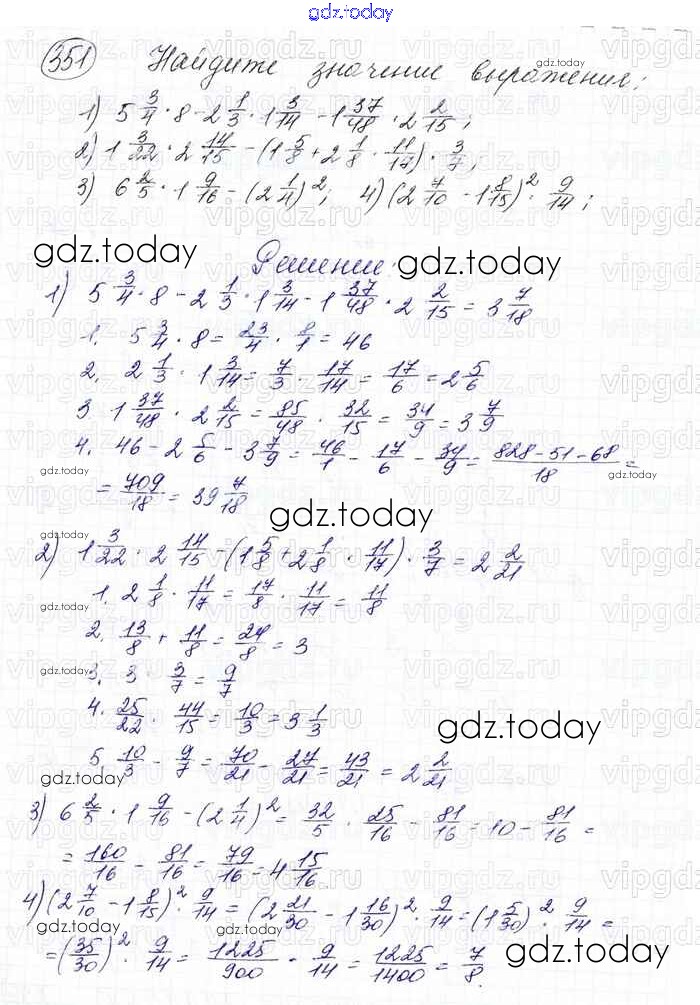 gdz.today
351 Найдите значение выражения:
1) 5 3/4 · 8 - 2 1/3 · 1 3/14 - 1 37/48 · 2 2/15;
2) 1 3/22 · 2 14/15 - (1 5/8 + 2 1/8 · 11/17) · 3/7;
3) 6 2/5 · 1 9/16 - (2 1/4)²; 4) (2 7/10 - 1 8/15)² · 9/14;
Решение:
1) 5 3/4 · 8 - 2 1/3 · 1 3/14 - 1 37/48 · 2 2/15 = 3 7/18
1. 5 3/4 · 8 = 23/4 · 8/1 = 46
2. 2 1/3 · 1 3/14 = 7/3 · 17/14 = 17/6 = 2 5/6
3 1 37/48 · 2 2/15 = 85/48 · 32/15 = 34/9 = 3 7/9
4. 46 - 2 5/6 - 3 7/9 = 46/1 - 17/6 - 34/9 = 828-51-68/18 =
= 709/18 = 39 7/18
2) 1 3/22 · 2 14/15 - (1 5/8 + 2 1/8 · 11/17) · 3/7 = 2 2/21
1. 2 1/8 · 11/17 = 17/8 · 11/17 = 11/8
2. 13/8 + 11/8 = 24/8 = 3
3. 3 · 3/7 = 9/7
4. 25/22 · 44/15 = 10/3 = 3 1/3
5 10/3 - 9/7 = 70/21 - 27/21 = 43/21 = 2 2/21
3) 6 2/5 · 1 9/16 - (2 1/4)² = 32/5 · 25/16 - 81/16 = 10 - 81/16 =
= 160/16 - 81/16 = 79/16 = 4 15/16
4) (2 7/10 - 1 8/15)² · 9/14 = (2 21/30 - 1 16/30)² · 9/14 = (1 5/30)² · 9/14 =
= (35/30)² · 9/14 = 1225/900 · 9/14 = 1225/1400 = 7/8.